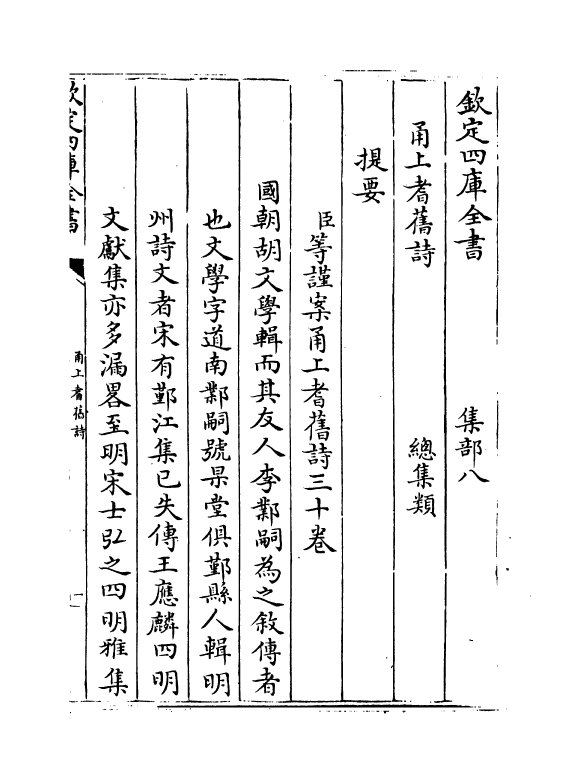 欽定四庫全書　集部八
甬上耆舊詩　總集類
提要
臣等謹案甬上耆舊詩三十卷
國朝胡文學輯而其友人李鄴嗣為之敘傳者
也文學字道南鄴嗣號杲堂俱鄞縣人輯明
州詩文者宋有鄞江集已失傳王應麟四明
文獻集亦多漏畧至明宋士弘之四明雅集
欽定四庫全書
甬上耆舊詩
一